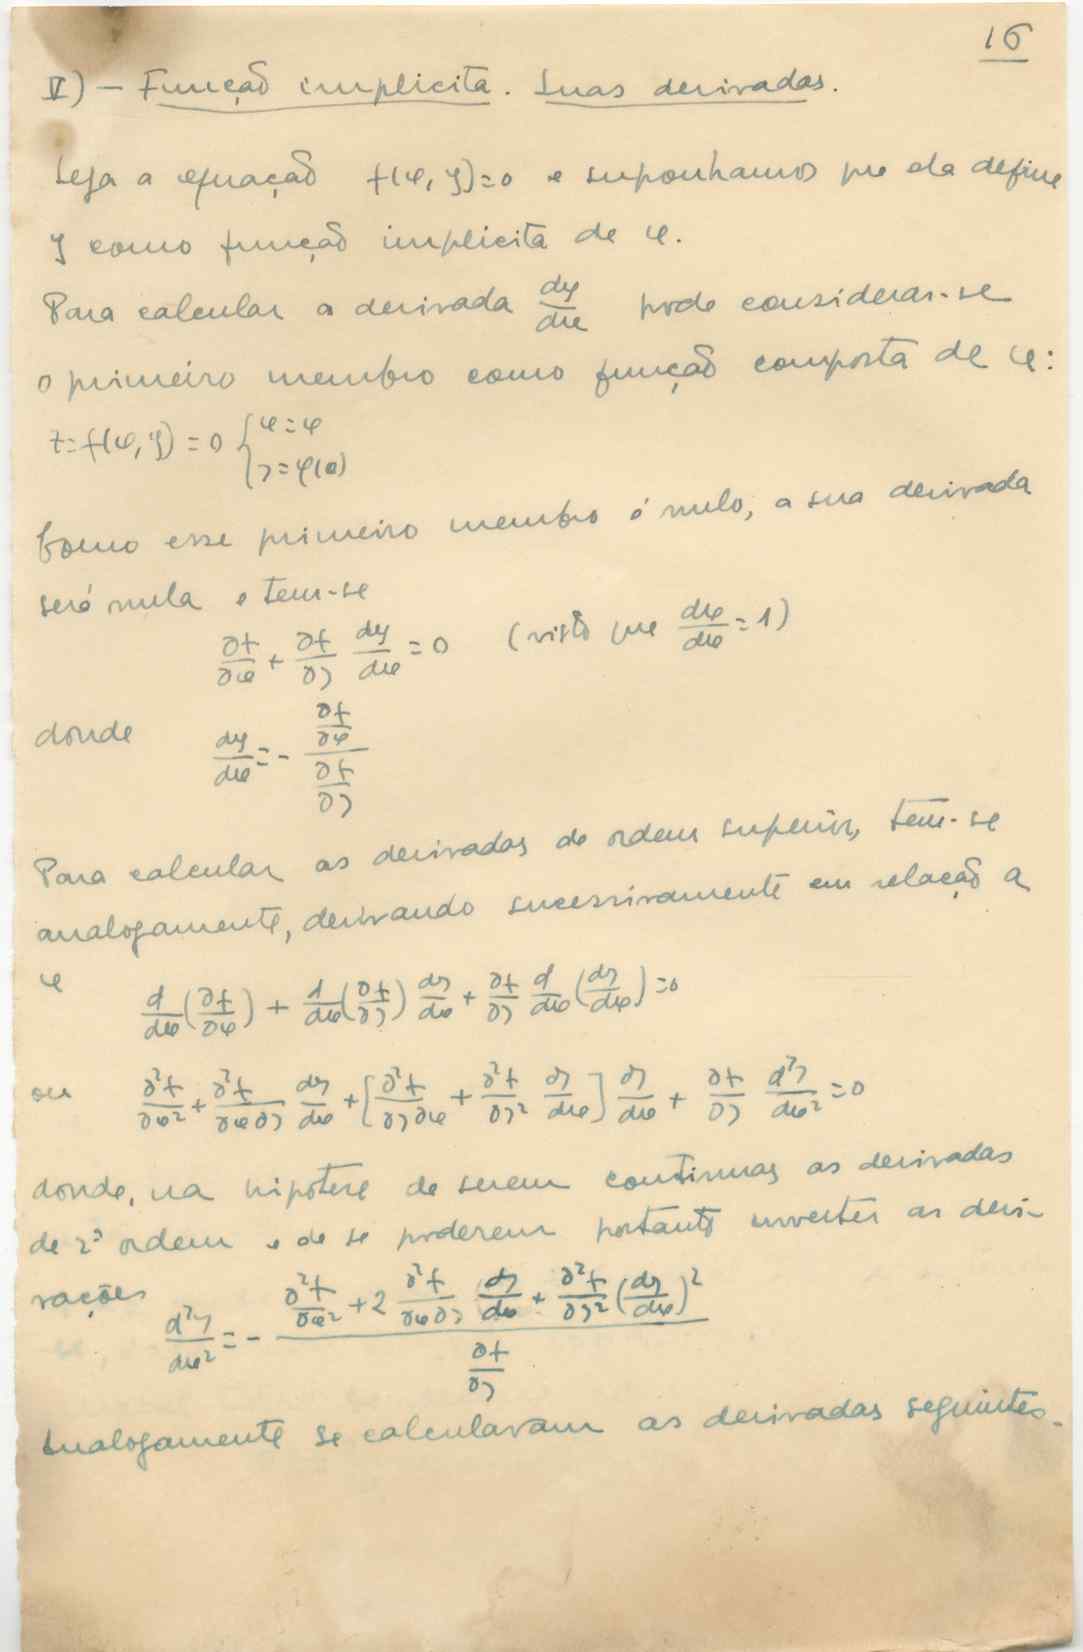 16
V) - Função implicita. Suas derivadas.
Seja a equação f(x, y)=0 e suponhamos que ela define
y como função implicita de x.
Para calcular a derivada dy/dx pode considerar-se
o primeiro membro como função composta de x:
z=f(x, y)=0 { x=x
y=φ(x)
Como esse primeiro membro é nulo, a sua derivada
será nula e tem-se
∂f/∂x + ∂f/∂y dy/dx = 0 (visto que dx/dx = 1)
donde dy/dx = - (∂f/∂x)/(∂f/∂y)
Para calcular as derivadas de ordem superior, tem-se
analogamente, derivando sucessivamente em relação a
x d/dx (∂f/∂x) + d/dx (∂f/∂y) dy/dx + ∂f/∂y d/dx (dy/dx) = 0
ou ∂²f/∂x² + ∂²f/∂x∂y dy/dx + [∂²f/∂y∂x + ∂²f/∂y² dy/dx] dy/dx + ∂f/∂y d²y/dx² = 0
donde, na hipotese de serem continuas as derivadas
de 2ª ordem e de se poderem portanto inverter as deri-
vações
d²y/dx² = - (∂²f/∂x² + 2 ∂²f/∂x∂y dy/dx + ∂²f/∂y² (dy/dx)²)/(∂f/∂y)
Analogamente se calculavam as derivadas seguintes.